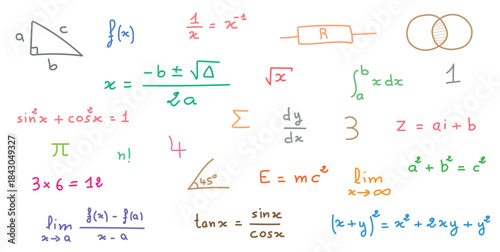 a c b
f(x)
1/x = x⁻¹
R
x = (-b ± √Δ) / 2a
√x
∫ₐᵇ x dx
1
sin²x + cos²x = 1
Σ
dy/dx
3
z = ai + b
π
n!
4
a² + b² = c²
3 x 6 = 18
45°
E = mc²
lim x→∞
lim x→a (f(x) - f(a)) / (x - a)
tan x = sin x / cos x
(x+y)² = x² + 2xy + y²
Adobe Stock | #1843049327